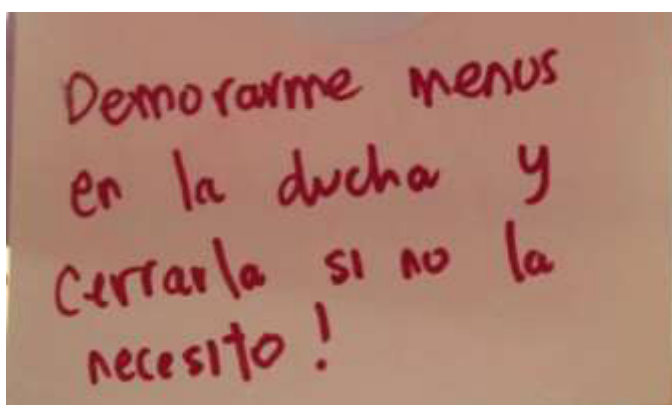 Demorarme menos
en la ducha y
cerrarla si no la
necesito!